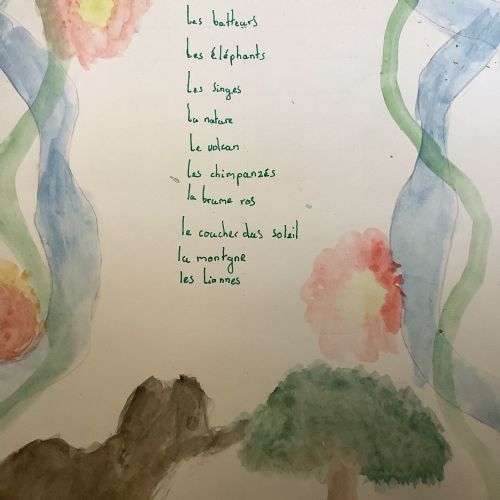 Les batteurs
Les éléphants
Les singes
La nature
Le volcan
les chimpanzés
la brume ros
le coucher dus soleil
la montgne
les lionnes